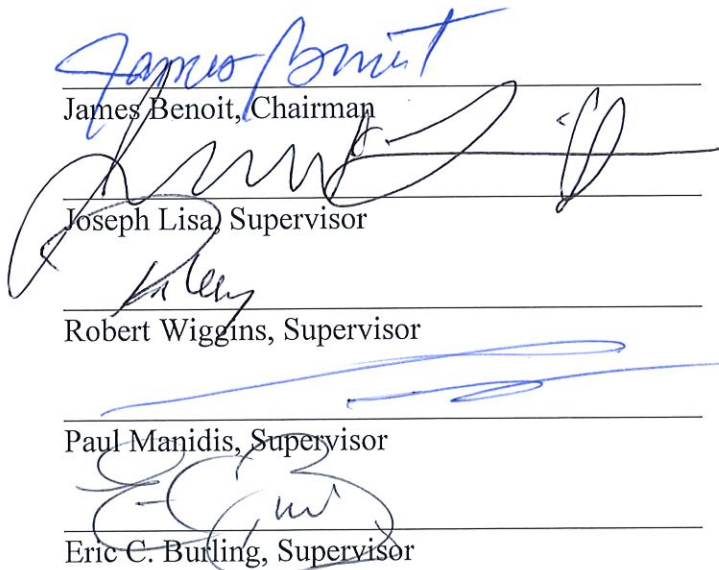 James Benoit
James Benoit, Chairman
Joseph Lisa, Supervisor
Robert Wiggins, Supervisor
Paul Manidis, Supervisor
Eric C. Burling, Supervisor